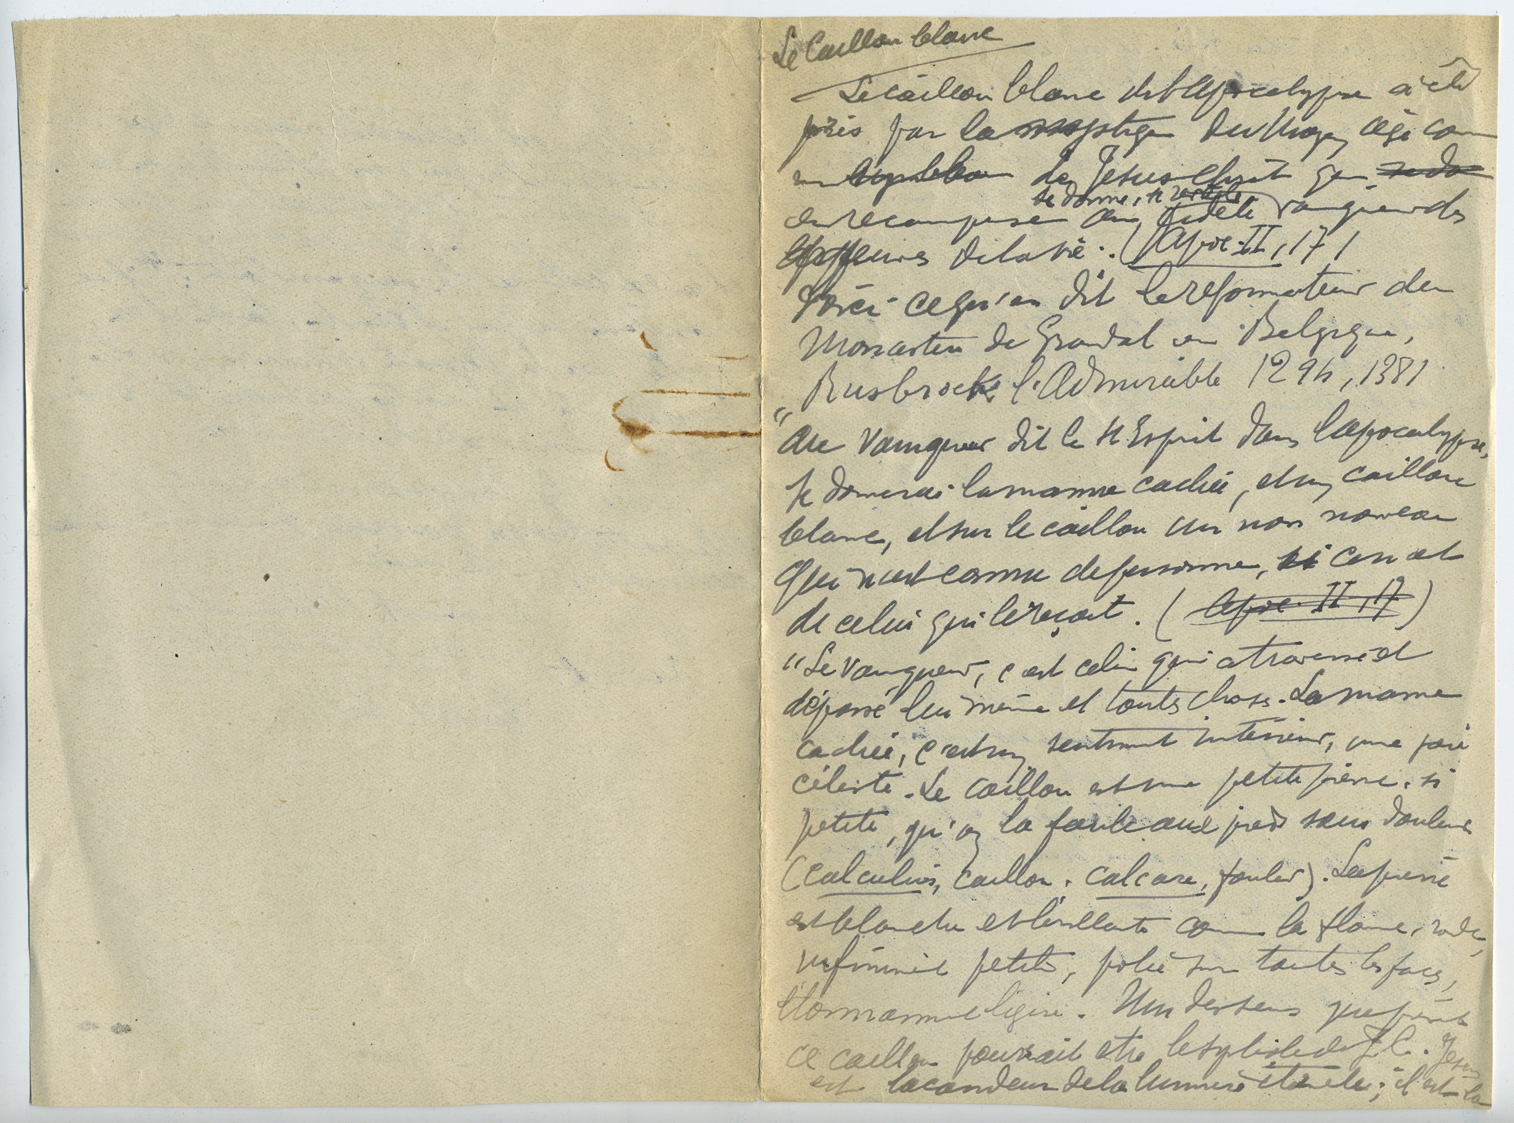 Le Caillou blanc
Le caillou blanc de l'Apocalypse a été
pris par la mystique du Moyen âge comme
un symbole de Jésus Christ qui
se donne, se révèle
en récompense au fidèle vainqueur des
de la vie. (Apoc. II, 17)
Voici ce qu'en dit le reformateur du
Monastère de Grandal en Belgique,
Rusbrock l'Admirable 1294, 1381
"Au vainqueur dit le St Esprit dans l'apocalypse,
je donnerai la manne cachée, et un caillou
blanc, et sur le caillou un nom nouveau
qui n'est connu de personne, si ce n'est
de celui qui le reçoit. (Apoc. II, 17)
"Le vainqueur, c'est celui qui a traversé et
dépassé lui même et toutes choses. La manne
cachée, c'est un sentiment intérieur, une joie
céleste. Le caillou est une petite pierre, si
petite, qu'on la foule aux pieds sans douleur
(calculus, caillou, calcare, fouler). La pierre
est blanche et brillante comme la flamme, ronde,
infiniment petite, polie sur toutes les faces,
étonnamment légère. Un des sens que présente
ce caillou pourrait être le symbole de J. C. Jésus
est la candeur de la lumière éternelle; il est la